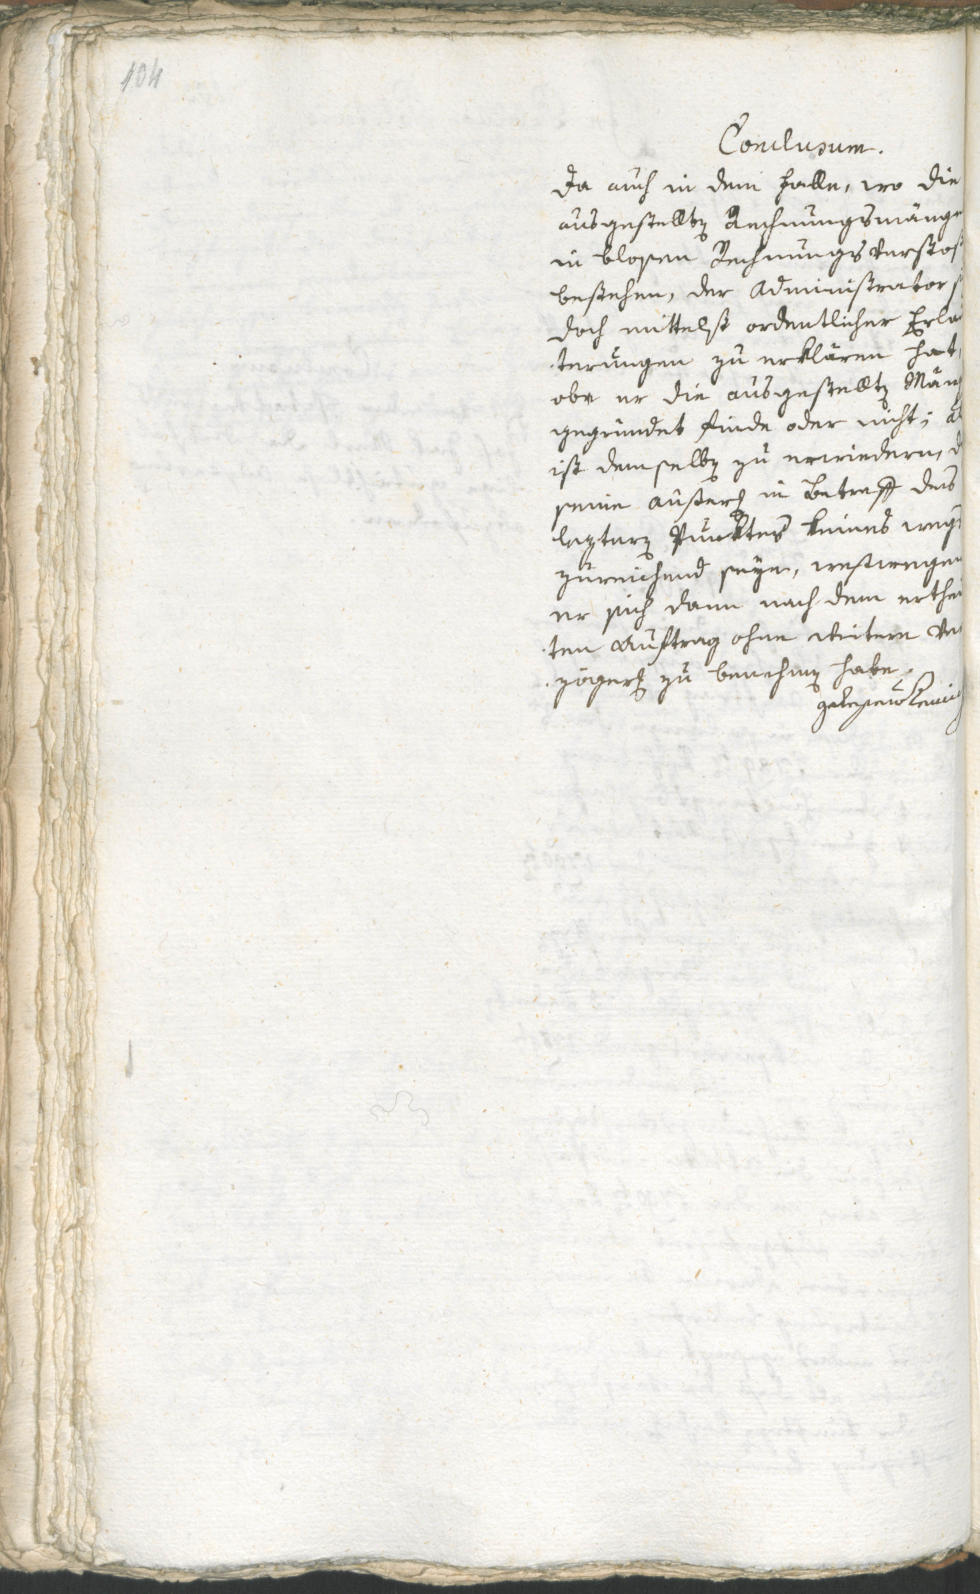 104
Conclusum.
Da auch in dem Falle, wo die
ausgestellte Rechnungsmänge
in blosen Rechnungs Verstos
bestehen, der Administrator
doch mittelst ordentlicher Erla
terungen zu erklären hat,
obe er die ausgestellte Män
gegründet finde oder nicht; a
ist demselben zu erwiedern, d
seine äußerung in Betreff des
leztern Punktes keines wegs
zureichend seye, weswegen
er sich dann nach dem erthei
ten Auftrag ohne weitere Ver
zögerung zu benehmen habe.